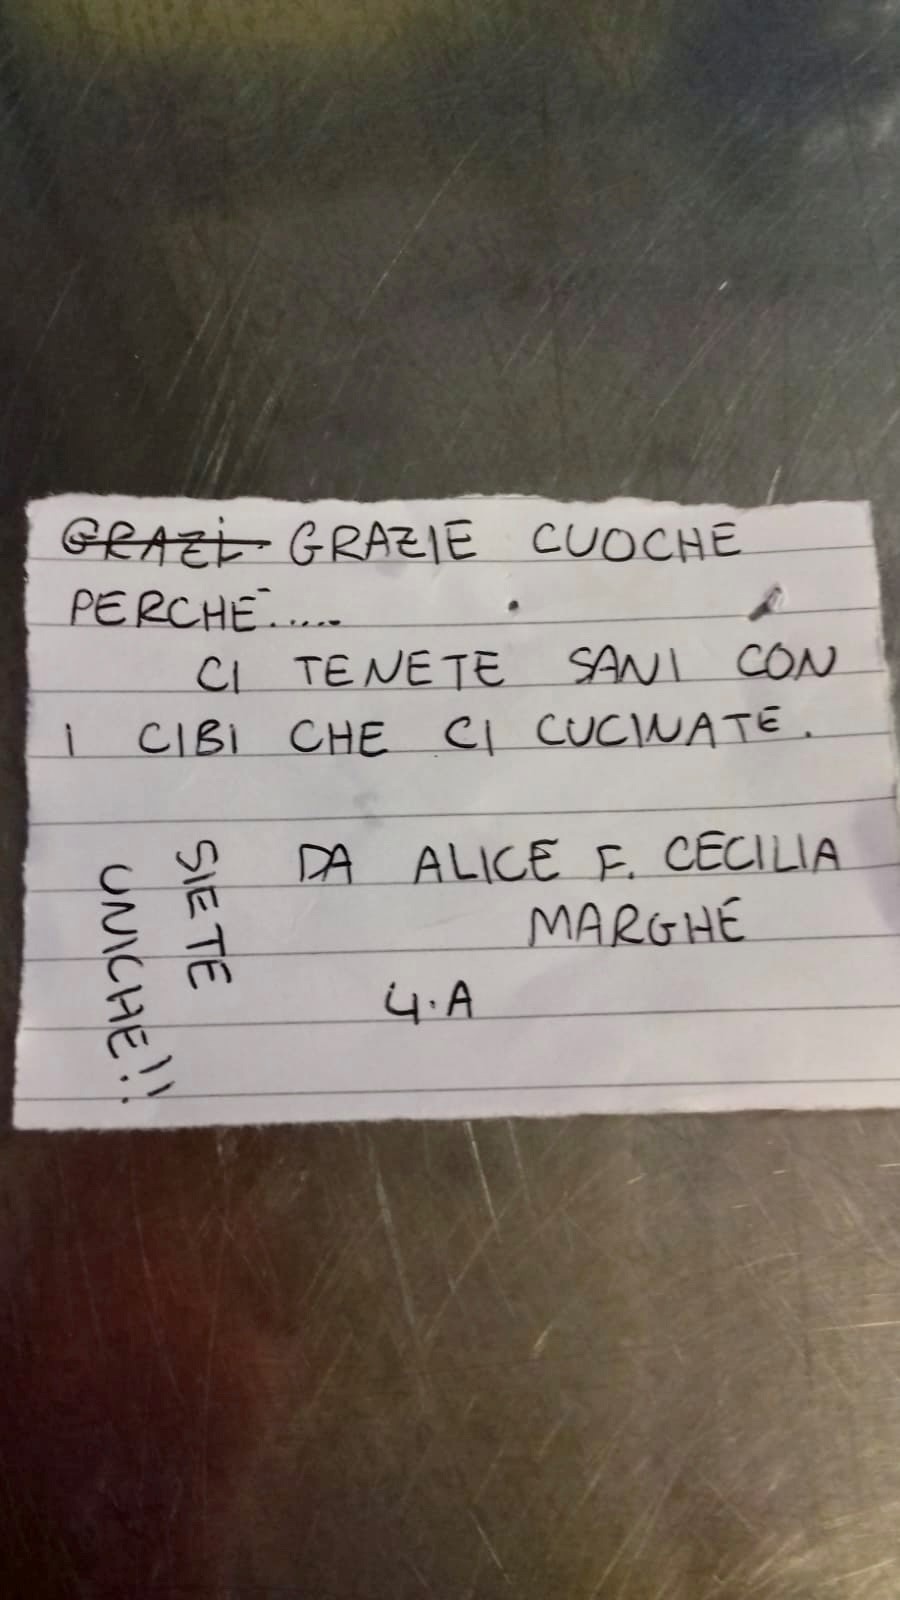 GRAZI GRAZIE CUOCHE
PERCHÉ.....
CI TENETE SANI CON
I CIBI CHE CI CUCINATE.
DA ALICE F. CECILIA
MARGHE
4.A
SIETE
UNICHE!!